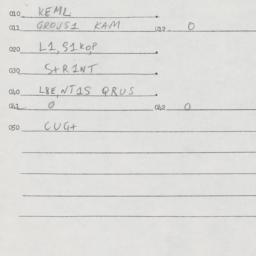 010 KEML
011 GROUS1 KAM 012 0
020 L1,S1KOP
030 S+R1NT
040 LKE,NT1S QRUS
041 0 042 0
050 CUG+